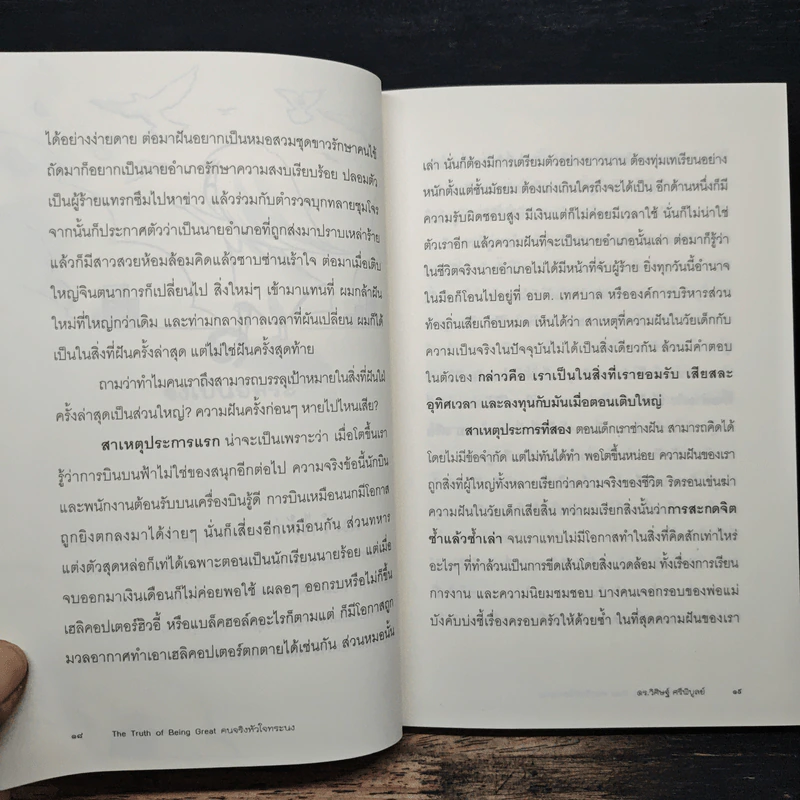 ได้อย่างง่ายดาย ต่อมาฝันอยากเป็นหมอสวมชุดขาวรักษาคนไข้
ถัดมาก็อยากเป็นนายอำเภอรักษาความสงบเรียบร้อย ปลอมตัว
เป็นผู้ร้ายแทรกซึมไปหาข่าว แล้วร่วมกับตำรวจบุกทลายซุ้มโจร
จากนั้นก็ประกาศตัวว่าเป็นนายอำเภอที่ถูกส่งมาปราบเหล่าร้าย
แล้วก็มีสาวสวยห้อมล้อมคิดแล้วซาบซ่านเร้าใจ ต่อมาเมื่อเติบ
ใหญ่จินตนาการก็เปลี่ยนไป สิ่งใหม่ๆ เข้ามาแทนที่ ผมกล้าฝัน
ใหม่ที่ใหญ่กว่าเดิม และท่ามกลางกาลเวลาที่ผันเปลี่ยน ผมก็ได้
เป็นในสิ่งที่ฝันครั้งล่าสุด แต่ไม่ใช่ฝันครั้งสุดท้าย
ถามว่าทำไมคนเราถึงสามารถบรรลุเป้าหมายในสิ่งที่ฝันใฝ่
ครั้งล่าสุดเป็นส่วนใหญ่? ความฝันครั้งก่อนๆ หายไปไหนเสีย?
สาเหตุประการแรก น่าจะเป็นเพราะว่า เมื่อโตขึ้นเรา
รู้ว่าการบินบนฟ้าไม่ใช่ของสนุกอีกต่อไป ความจริงข้อนี้นักบิน
และพนักงานต้อนรับบนเครื่องบินรู้ดี การบินเหมือนนกมีโอกาส
ถูกยิงตกลงมาได้ง่ายๆ นั่นก็เสี่ยงอีกเหมือนกัน ส่วนทหาร
แต่งตัวสุดหล่อก็เท่ได้เฉพาะตอนเป็นนักเรียนนายร้อย แต่เมื่อ
จบออกมาเงินเดือนก็ไม่ค่อยพอใช้ เผลอๆ ออกรบหรือไม่ก็ขึ้น
เฮลิคอปเตอร์ฮิวอี้ หรือแบล็คฮอล์คอะไรก็ตามแต่ ก็มีโอกาสถูก
มวลอากาศทำเอาเฮลิคอปเตอร์ตกตายได้เช่นกัน ส่วนหมอนั้น
๑๘ The Truth of Being Great คนจริงหัวใจทระนง
เล่า นั่นก็ต้องมีการเตรียมตัวอย่างยาวนาน ต้องทุ่มเทเรียนอย่าง
หนักตั้งแต่ชั้นมัธยม ต้องเก่งเกินใครถึงจะได้เป็น อีกด้านหนึ่งก็มี
ความรับผิดชอบสูง มีเงินแต่ก็ไม่ค่อยมีเวลาใช้ นั่นก็ไม่น่าใช่
ตัวเราอีก แล้วความฝันที่จะเป็นนายอำเภอนั้นเล่า ต่อมาก็รู้ว่า
ในชีวิตจริงนายอำเภอไม่ได้มีหน้าที่จับผู้ร้าย ยิ่งทุกวันนี้อำนาจ
ในมือก็โอนไปอยู่ที่ อบต. เทศบาล หรือองค์การบริหารส่วน
ท้องถิ่นเสียเกือบหมด เห็นได้ว่า สาเหตุที่ความฝันในวัยเด็กกับ
ความเป็นจริงในปัจจุบันไม่ได้เป็นสิ่งเดียวกัน ล้วนมีคำตอบ
ในตัวเอง กล่าวคือ เราเป็นในสิ่งที่เรายอมรับ เสียสละ
อุทิศเวลา และลงทุนกับมันเมื่อตอนเติบใหญ่
สาเหตุประการที่สอง ตอนเด็กเราช่างฝัน สามารถคิดได้
โดยไม่มีข้อจำกัด แต่ไม่ทันได้ทำ พอโตขึ้นหน่อย ความฝันของเรา
ถูกสิ่งที่ผู้ใหญ่ทั้งหลายเรียกว่าความจริงของชีวิต ริดรอนเข่นฆ่า
ความฝันในวัยเด็กเสียสิ้น ทว่าผมเรียกสิ่งนั้นว่าการสะกดจิต
ซ้ำแล้วซ้ำเล่า จนเราแทบไม่มีโอกาสทำในสิ่งที่คิดสักเท่าไหร่
อะไรๆ ที่ทำล้วนเป็นการขีดเส้นโดยสิ่งแวดล้อม ทั้งเรื่องการเรียน
การงาน และความนิยมชมชอบ บางคนเจอกรอบของพ่อแม่
บังคับบ่งชี้เรื่องครอบครัวให้ด้วยซ้ำ ในที่สุดความฝันของเรา
ดร.วิศิษฐ์ ศรีพิบูลย์ ๑๙